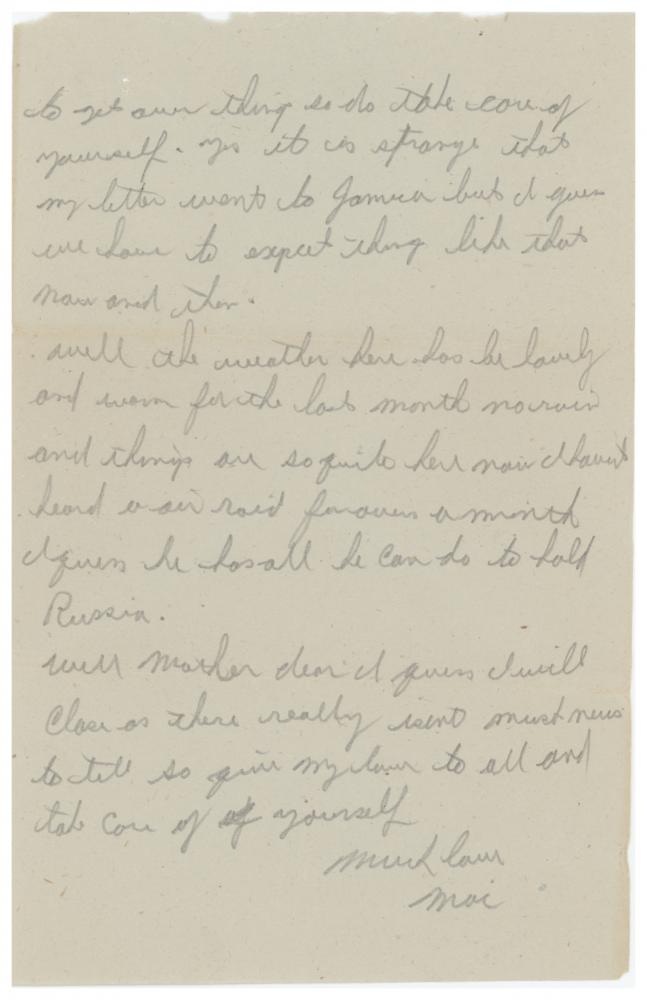 to get over thing so do take care of
yourself. yes it is strange that
my letter went to Jamica but I guess
we have to expect thing like that
now and then.
well the weather here has be lovely
and warm for the last month no rain
and things are so quite here now I havent
heard a air raid for over a month
I guess he has all he can do to hold
Russia.
well Mother dear I guess I will
close as there really isent much news
to tell so give my love to all and
take care of of yourself
much love